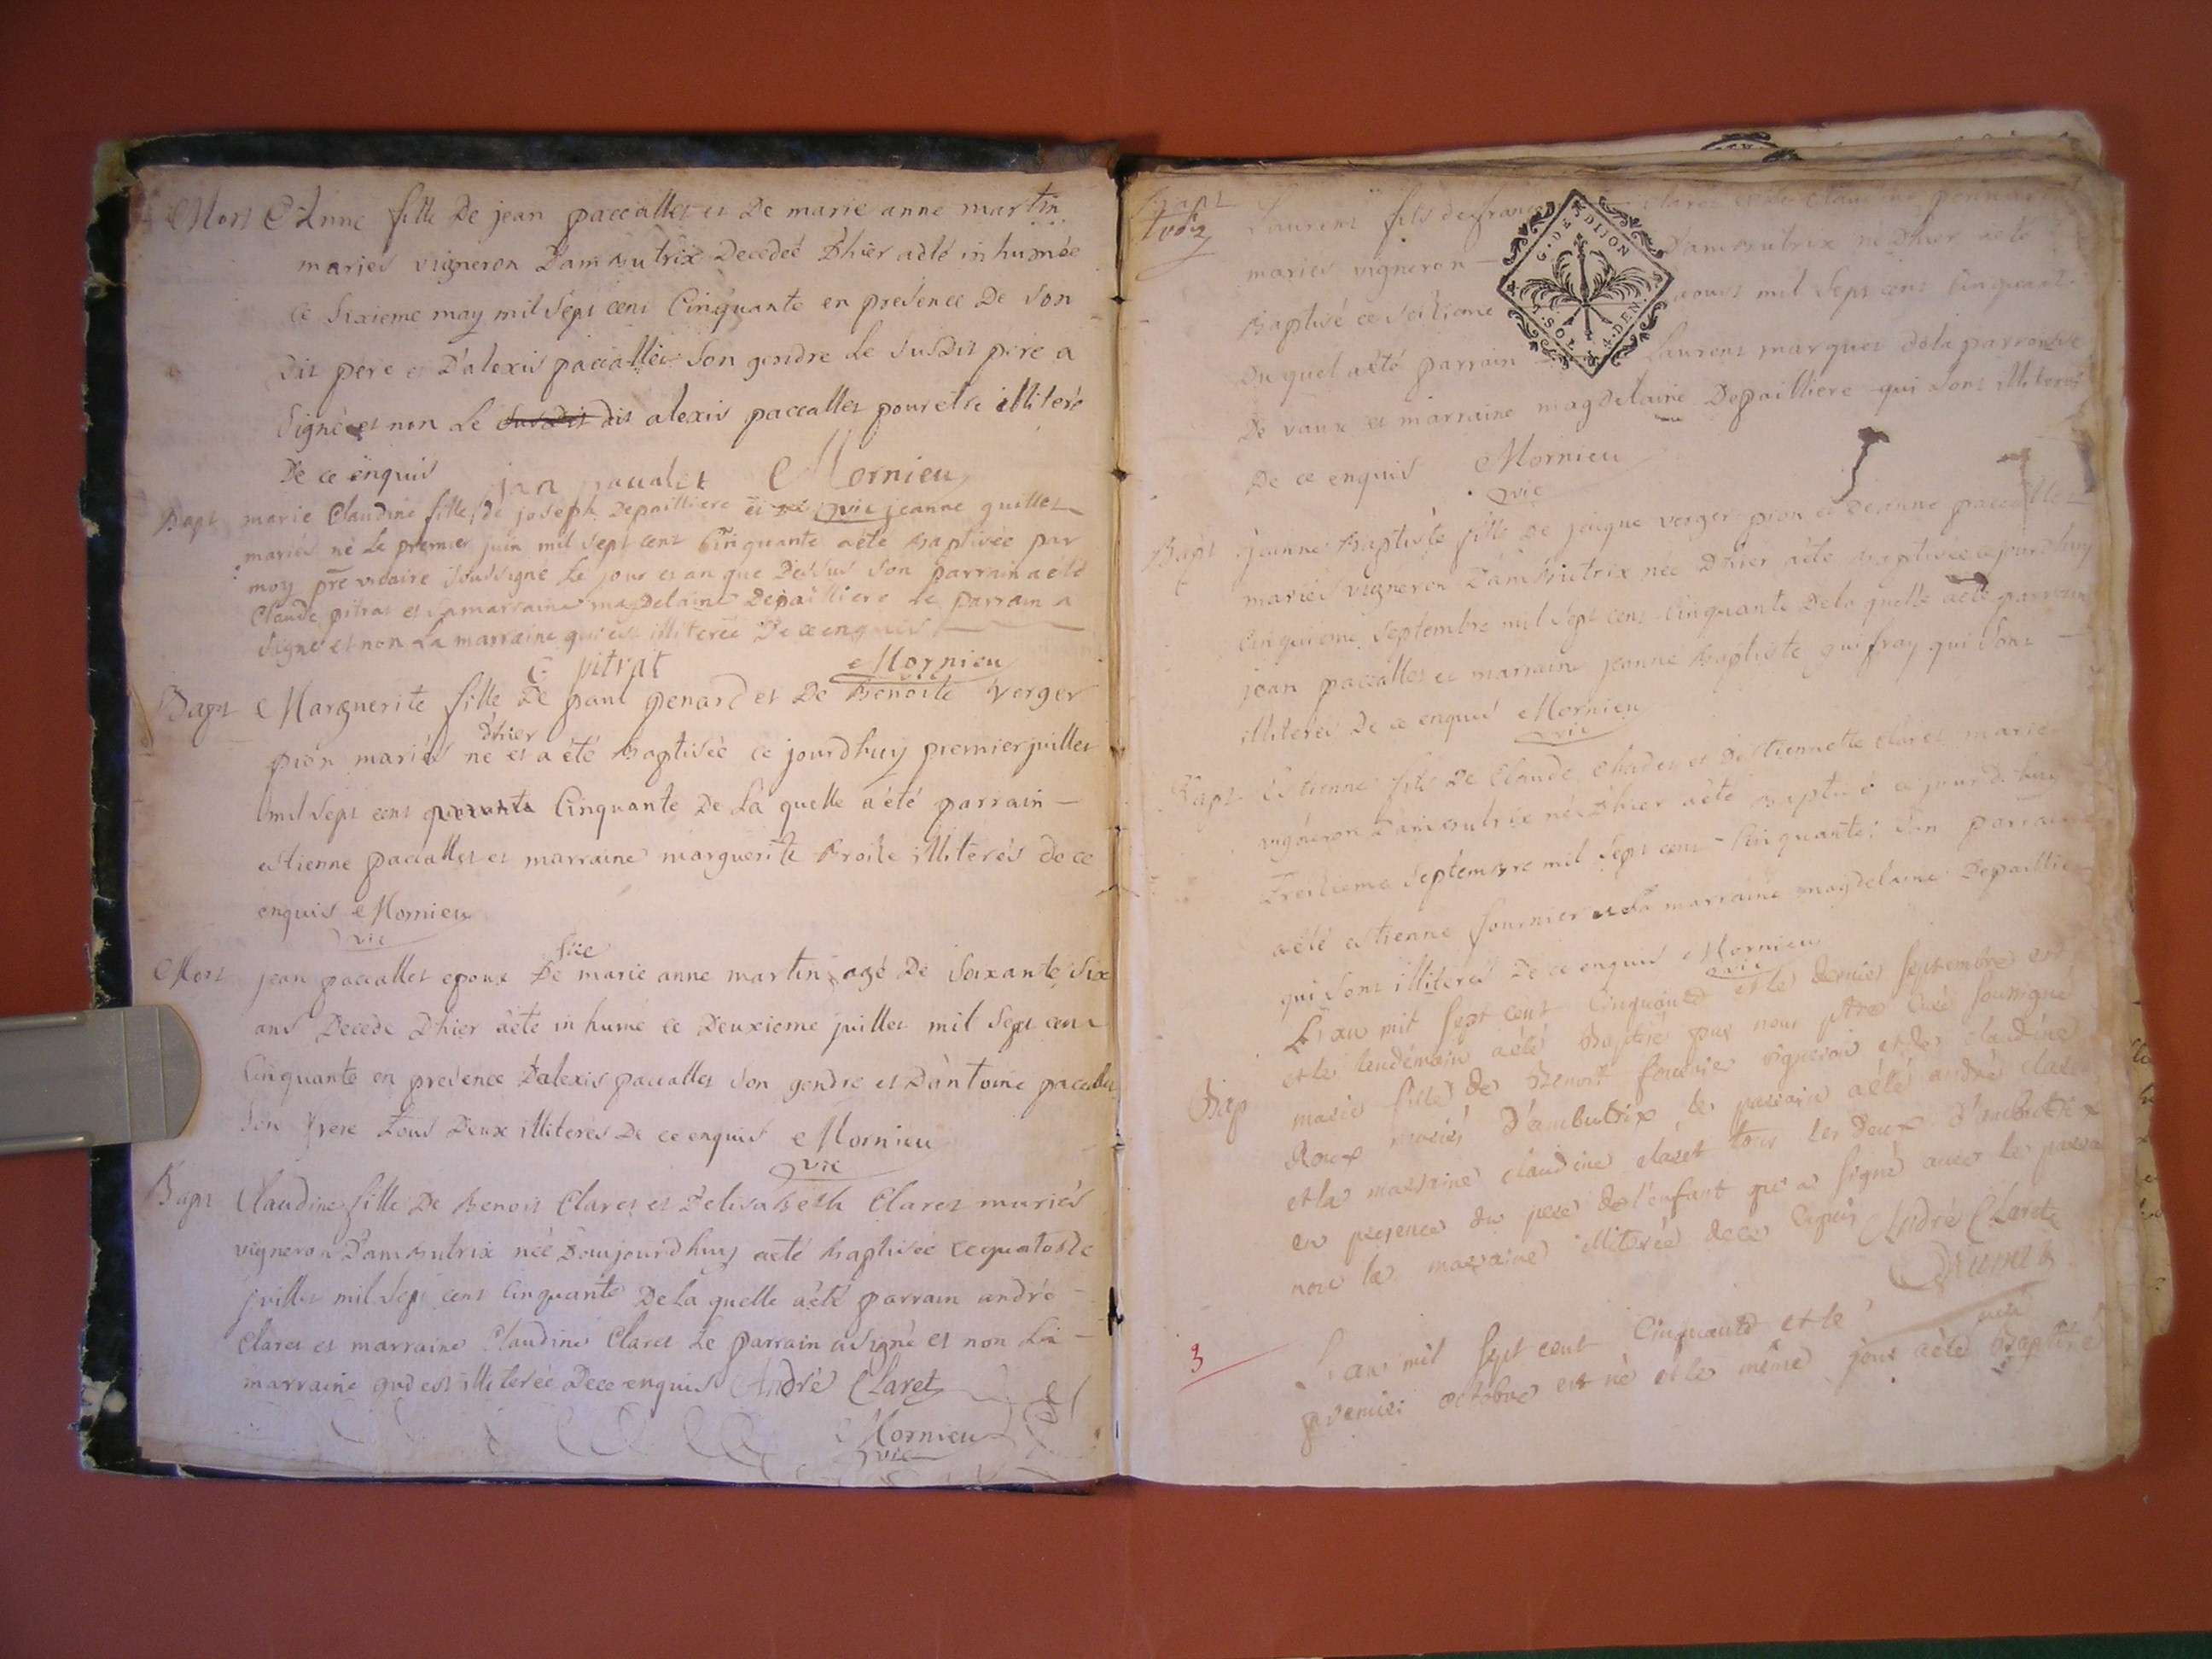 Mort Anne fille De jean paccallet et De marie anne martin
mariés vigneron D'ambutrix Decedeé D'hier aété inhumée
ce Sixieme may mil Sept cent Cinquante en presence De Son
Dit pere et D'alexis paccallet Son gendre Le Susdit pere a
Signé et non Le Susdit dit alexis paccallet pour etre illiteré
De ce enquis jan pacalet Mornieu
Bapt marie Claudine fille de joseph Depailliere et vic jeanne guillet
mariés né Le premier juin mil Sept cent Cinquante aété Baptisée par
moy pre vicaire Soussigne Le jour et an que Dessus Son parrain aété
Claude pitrat et Sa marraine magdelaine Depailliere Le parrain a
Signé et non La marraine qui est illiterée De ce enquis
C pitrat Mornieu vic
Bapt Marguerite fille De paul penard et De Benoite Verger
d'hier
pion mariés né et a été Baptisée ce jourdhuy premier juillet
mil Sept cent quarante Cinquante De La quelle aété parrain
estienne paccallet et marraine marguerite Broile illiterés de ce
enquis Mornieu
vic
füe
Mort jean paccallet epoux De marie anne martin agé De Soixante Six
ans Decede D'hier aété inhumé ce Deuxieme juillet mil Sept cent
Cinquante en presence D'alexis paccallet Son gendre et D'antoine paccallet
Son frere Tous Deux illiterés De ce enquis Mornieu
vic
Bapt Claudine fille De Benoit Claret et D'elisabeth Claret mariés
vigneron D'ambutrix née Daujourdhuy aété Baptisée ce quatorze
juillet mil Sept cent Cinquante De La quelle aété parrain andré
Claret et marraine Claudine Claret Le parrain a Signé et non La
marraine qui est illiterée De ce enquis André Claret
Mornieu
vic
Bapt Laurent fils de françois Claret et de Claudine
mariés vigneron D'ambutrix né D'hier aété
Baptisé ce aoust mil Sept cent Cinquante
Du quel aété parrain Laurent marguet de la parroisse
De vaux et marraine magdelaine Depailliere qui Sont illiterés
De ce enquis Mornieu
vic
G. DE DIJON
Bapt jeanne Baptiste fille De jacque verger pion et De anne paccallet
mariés vigneron D'ambutrix née D'hier aété Baptisée ce jourdhuy
Cinquieme Septembre mil Sept cent Cinquante De la quelle aété parrain
jean paccallet et marraine jeanne Baptiste guifray qui Sont
illiterés De ce enquis Mornieu
vic
Bapt Estienne fils De Claude et D'estiennette Claret mariés
vigneron D'ambutrix né D'hier aété Baptisé ce jourdhuy
Treizieme Septembre mil Sept cent Cinquante Son parrain
aété estienne fournier et La marraine magdelaine Depailliere
qui Sont illiterés De ce enquis Mornieu
vic
L'an mil Sept cent Cinquante et le dernier Septembre est
et le lendemain aété Baptisé par nous ptre Curé Soussigné
Bap marie fille de Benoit fournier vigneron et de claudine
Roux mariés D'ambutrix le parrain aété andré claret
et la marraine claudine claret tous les Deux D'ambutrix
en presence du pere de l'enfant qui a signé avec le parrain
non la marraine illiterée de ce enquis André Claret
curé
3 L'an mil Sept cent Cinquante et le
premier octobre est né et le même jour aété Baptisé